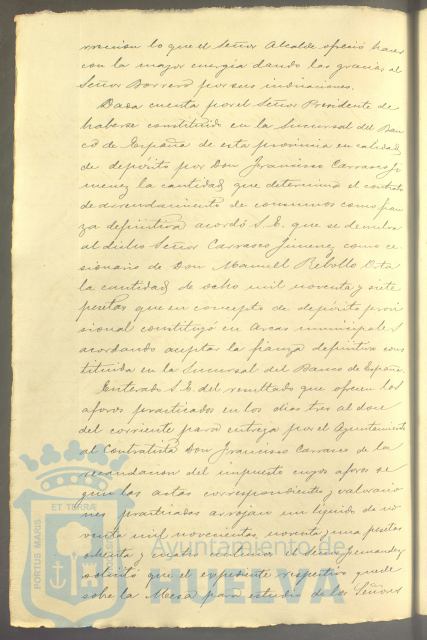 rrencion lo que el Señor Alcalde ofreció hacer
con la mayor energía dando las gracias al
Señor Borrero por sus indicaciones.
Dada cuenta por el Señor Presidente de
haberse constituido en la Sucursal del Ban
co de España de esta provincia en calidad
de depósito por Don Francisco Carrasco Ji
menez la cantidad que determina el contrato
de arrendamiento de consumos como fian
za definitiva acordó S.E. que se devuelva
al dicho Señor Carrasco Jimenez como ce
sionario de Don Manuel Rebollo Orta
la cantidad de ocho mil noventa y siete
pesetas que en concepto de depósito provi
sional constituyó en Arcas municipales
acordando aceptar la fianza definitiva cons
tituida en la Sucursal del Banco de España
Enterado S.E. del resultado que ofrecen los
aforos practicados en los dias tres al doce
del corriente para entrega por el Ayuntamiento
al Contratista Don Francisco Carrasco de la
recaudacion del impuesto cuyos aforos se
gun las actas correspondientes y valoracio
nes practicadas arrojan un líquido de no
venta mil novecientas noventa y una pesetas
ochenta y centimos el Señor Fernandez
solicitó que el expediente respectivo quede
sobre la Mesa para estudio de los Señores
PORTUS MARIS
ET TERRÆ
Ayuntamiento de
HUELVA